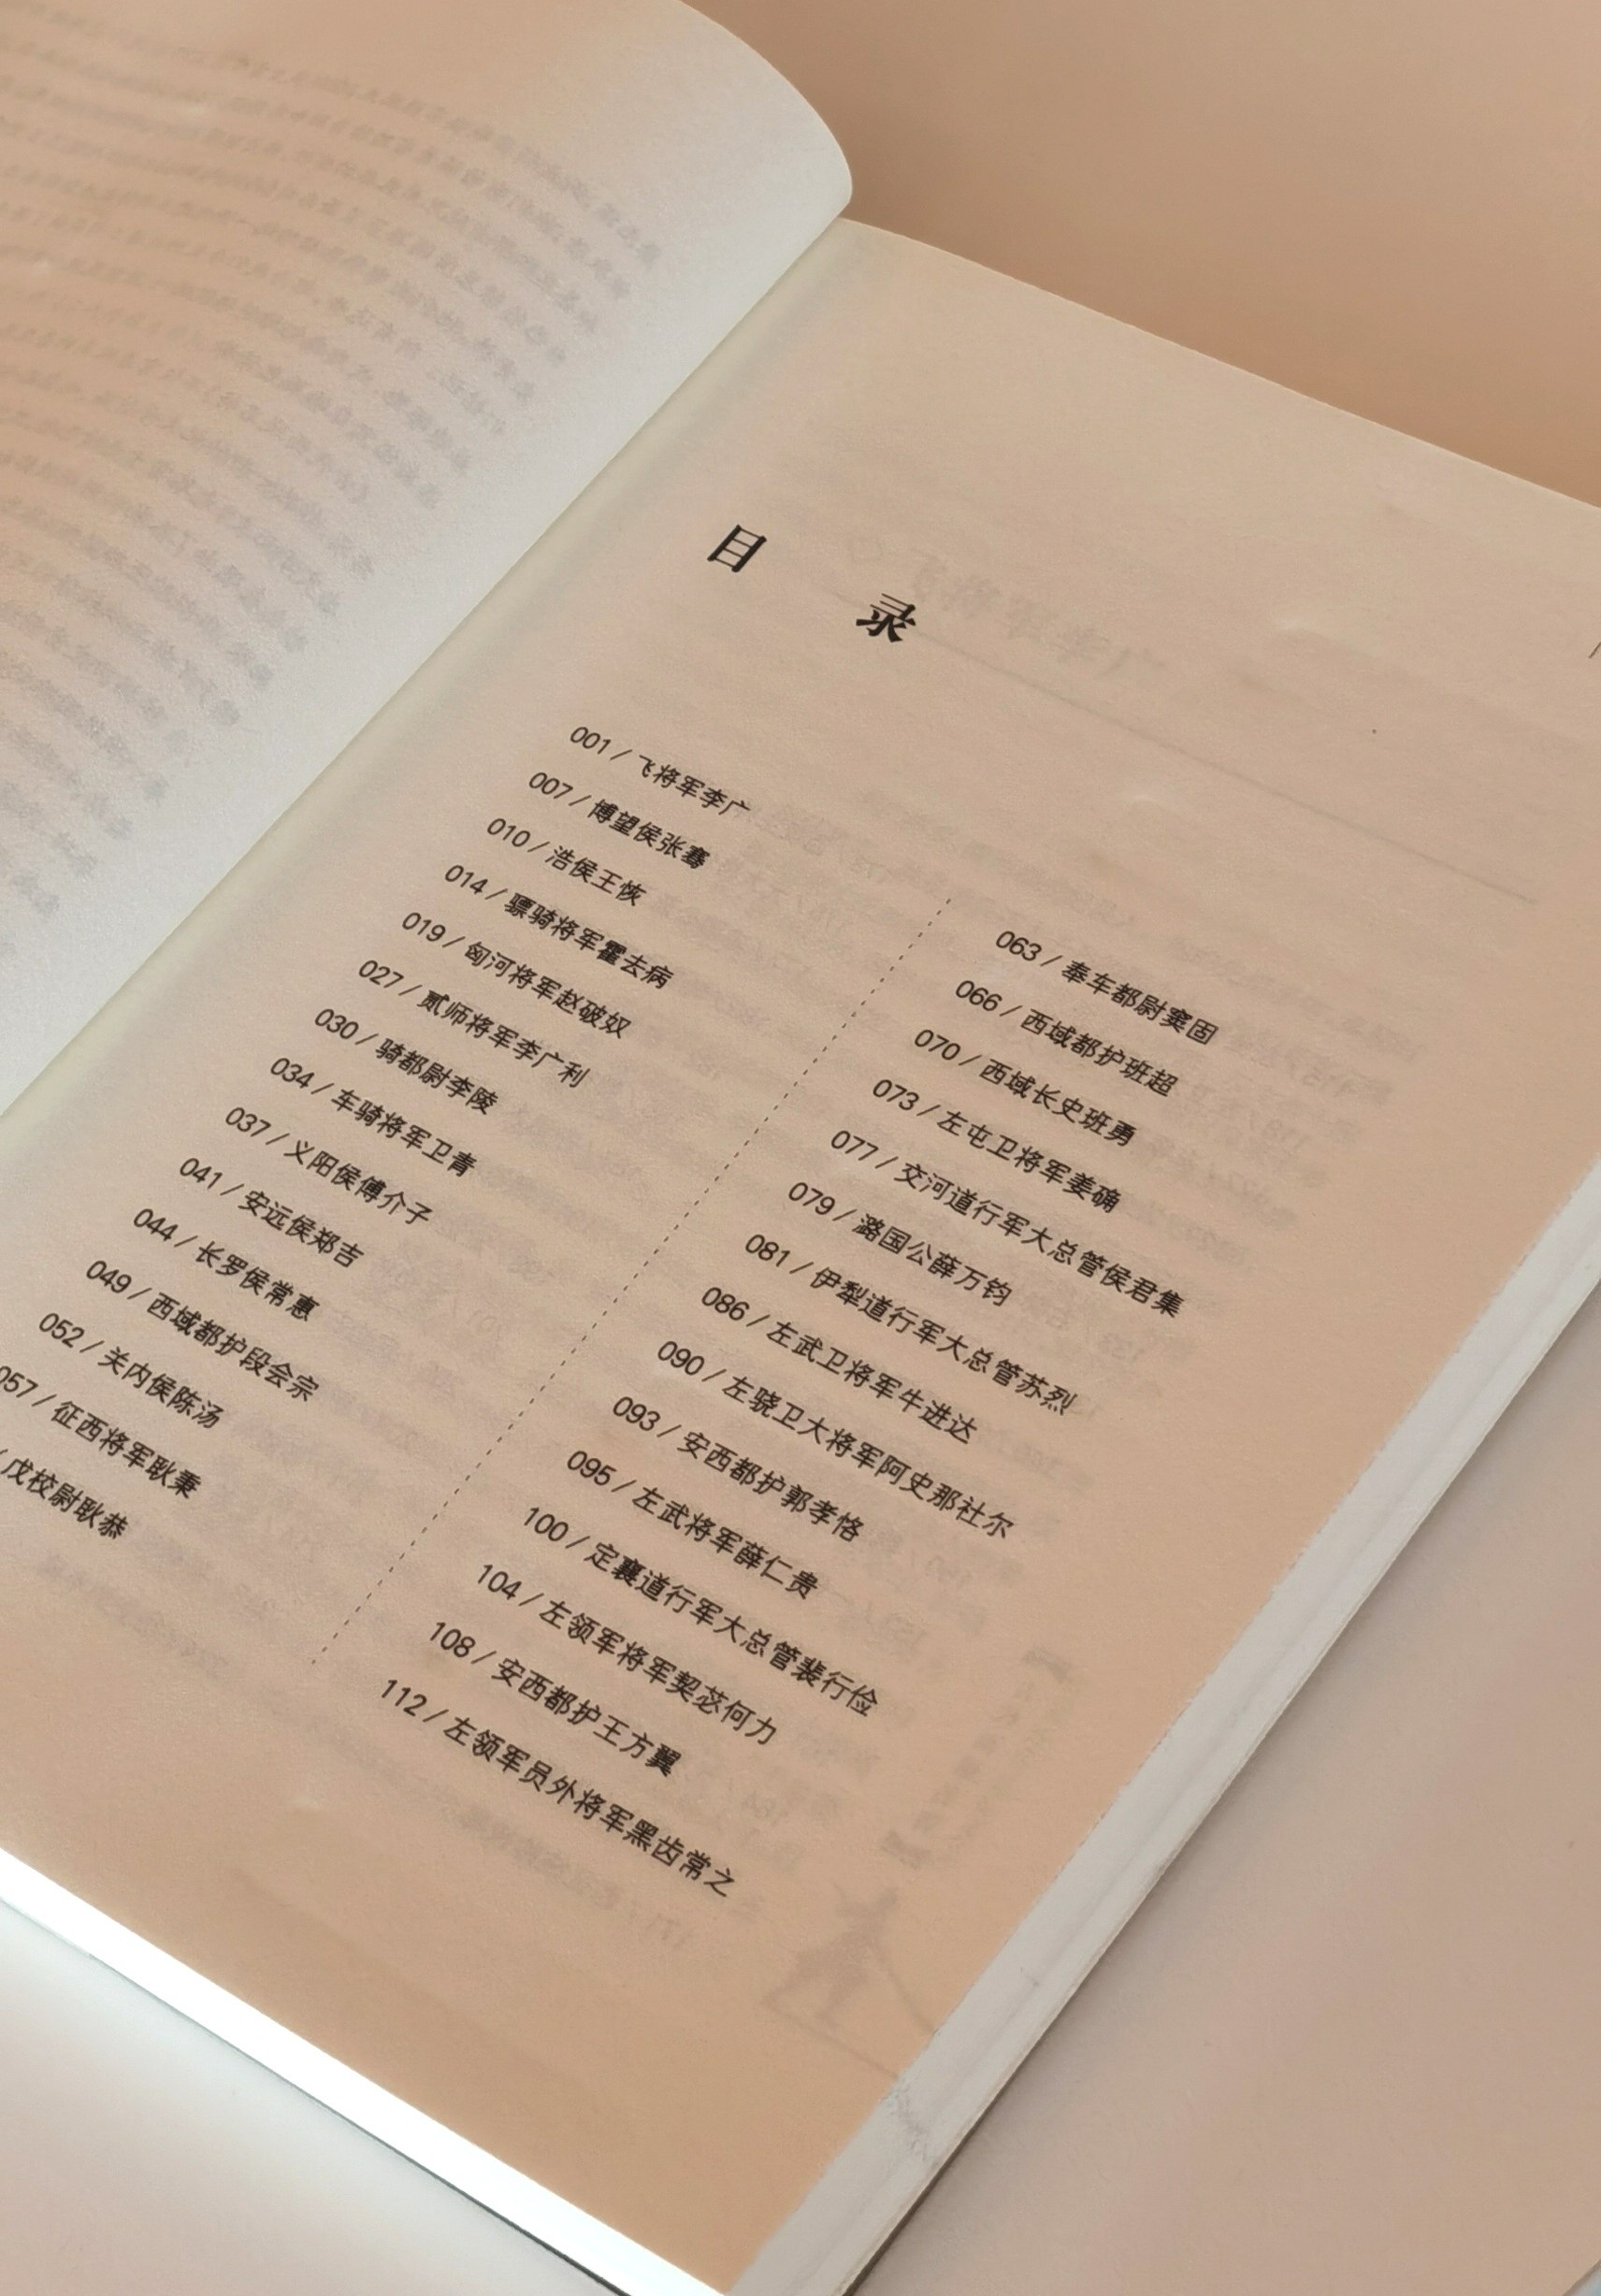 目 录
001 / 飞将军李广
007 / 博望侯张骞
010 / 浩侯王恢
014 / 骠骑将军霍去病
019 / 匈河将军赵破奴
027 / 贰师将军李广利
030 / 骑都尉李陵
034 / 车骑将军卫青
037 / 义阳侯傅介子
041 / 安远侯郑吉
044 / 长罗侯常惠
049 / 西域都护段会宗
052 / 关内侯陈汤
057 / 征西将军耿秉
/ 戊校尉耿恭
063 / 奉车都尉窦固
066 / 西域都护班超
070 / 西域长史班勇
073 / 左屯卫将军姜确
077 / 交河道行军大总管侯君集
079 / 潞国公薛万钧
081 / 伊犁道行军大总管苏烈
086 / 左武卫将军牛进达
090 / 左骁卫大将军阿史那社尔
093 / 安西都护郭孝恪
095 / 左武将军薛仁贵
100 / 定襄道行军大总管裴行俭
104 / 左领军将军契苾何力
108 / 安西都护王方翼
112 / 左领军员外将军黑齿常之